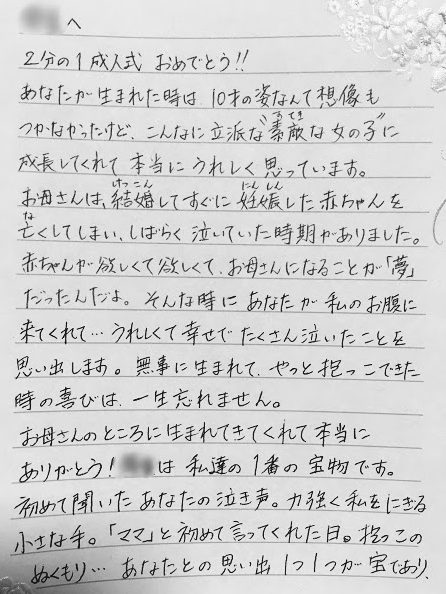 へ
2分の1成人式 おめでとう!!
あなたが生まれた時は、10才の姿なんて想像も
つかなかったけど、こんなに立派な"素敵な女の子"に
成長してくれて本当にうれしく思っています。
お母さんは、結婚してすぐに妊娠した赤ちゃんを
亡くしてしまい、しばらく泣いていた時期がありました。
赤ちゃんが欲しくて欲しくて、お母さんになることが「夢」
だったんだよ。そんな時にあなたが私のお腹に
来てくれて…うれしくて幸せでたくさん泣いたことを
思い出します。無事に生まれて、やっと抱っこできた
時の喜びは、一生忘れません。
お母さんのところに生まれてきてくれて本当に
ありがとう!は私達の1番の宝物です。
初めて聞いたあなたの泣き声。力強く私をにぎる
小さな手。「ママ」と初めて言ってくれた日。抱っこの
ぬくもり…あなたとの思い出1つ1つが宝であり、